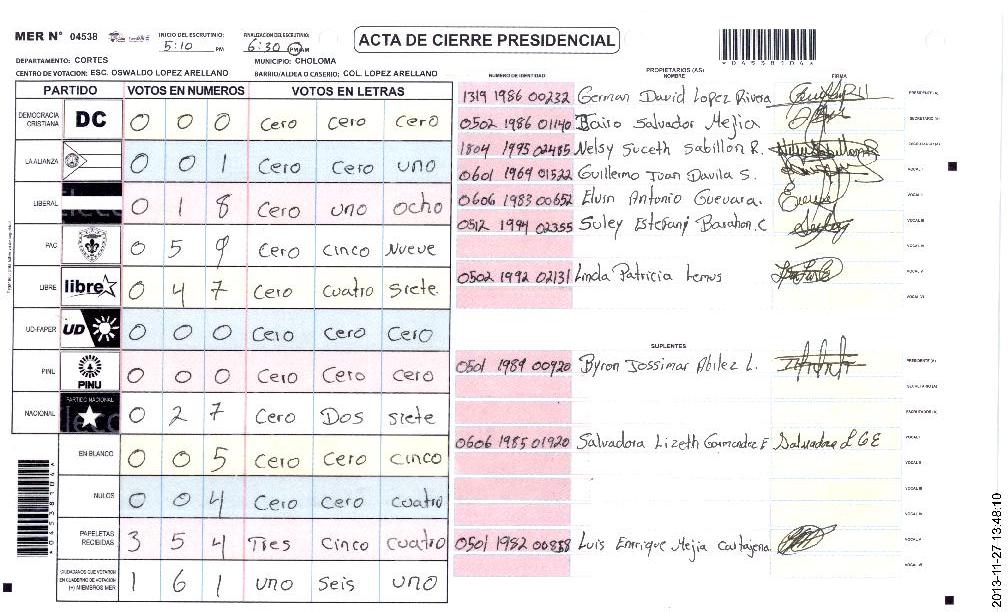 MER N° 04538 INICIO DEL ESCRUTINIO: 5:10 PM FINALIZACION DEL ESCRUTINIO: 6:30 PM AM
ACTA DE CIERRE PRESIDENCIAL
DEPARTAMENTO: CORTES MUNICIPIO: CHOLOMA
CENTRO DE VOTACION: ESC. OSWALDO LOPEZ ARELLANO BARRIO/ALDEA O CASERIO: COL. LOPEZ ARELLANO
PARTIDO VOTOS EN NUMEROS VOTOS EN LETRAS
DEMOCRACIA CRISTIANA DC 0 0 0 Cero Cero Cero
LA ALIANZA 0 0 1 Cero Cero uno
LIBERAL 0 1 8 Cero uno ocho
PAC 0 5 9 Cero Cinco Nueve
LIBRE libre 0 4 7 Cero Cuatro Siete
UD-FAPER UD 0 0 0 Cero Cero Cero
PINU PINU 0 0 0 Cero Cero Cero
NACIONAL PARTIDO NACIONAL 0 2 7 Cero Dos siete
EN BLANCO 0 0 5 Cero Cero cinco
NULOS 0 0 4 Cero Cero cuatro
PAPELETAS RECIBIDAS 3 5 4 Tres Cinco cuatro
CIUDADANOS QUE VOTARON EN CUADERNO DE VOTACION (+) MIEMBROS MER 1 6 1 uno seis uno
NUMERO DE IDENTIDAD PROPIETARIOS (AS) NOMBRE FIRMA
1319 1986 00232 German David Lopez Rivera PRESIDENTE (A)
0502 1986 01140 Jairo Salvador Mejia SECRETARIO (A)
1804 1995 02485 Nelsy Suceth Sabillon R. ESCRUTADOR (A)
0601 1969 01522 Guillermo Juan Davila S. VOCAL I
0606 1983 00652 Elvin Antonio Guevara. VOCAL II
0512 1994 02355 Suley Estefani Barahon.C VOCAL III
VOCAL IV
0502 1992 02131 Linda Patricia Lemus VOCAL V
VOCAL VI
SUPLENTES
0501 1989 00920 Byron Jossimar Abilez L. PRESIDENTE (A)
SECRETARIO (A)
ESCRUTADOR (A)
0606 1985 01920 Salvadora Lizeth E Salvadora L G E VOCAL I
VOCAL II
VOCAL III
VOCAL IV
0501 1982 Luis Enrique Mejia Cartajena VOCAL V
VOCAL VI
2013-11-27 13:48:10